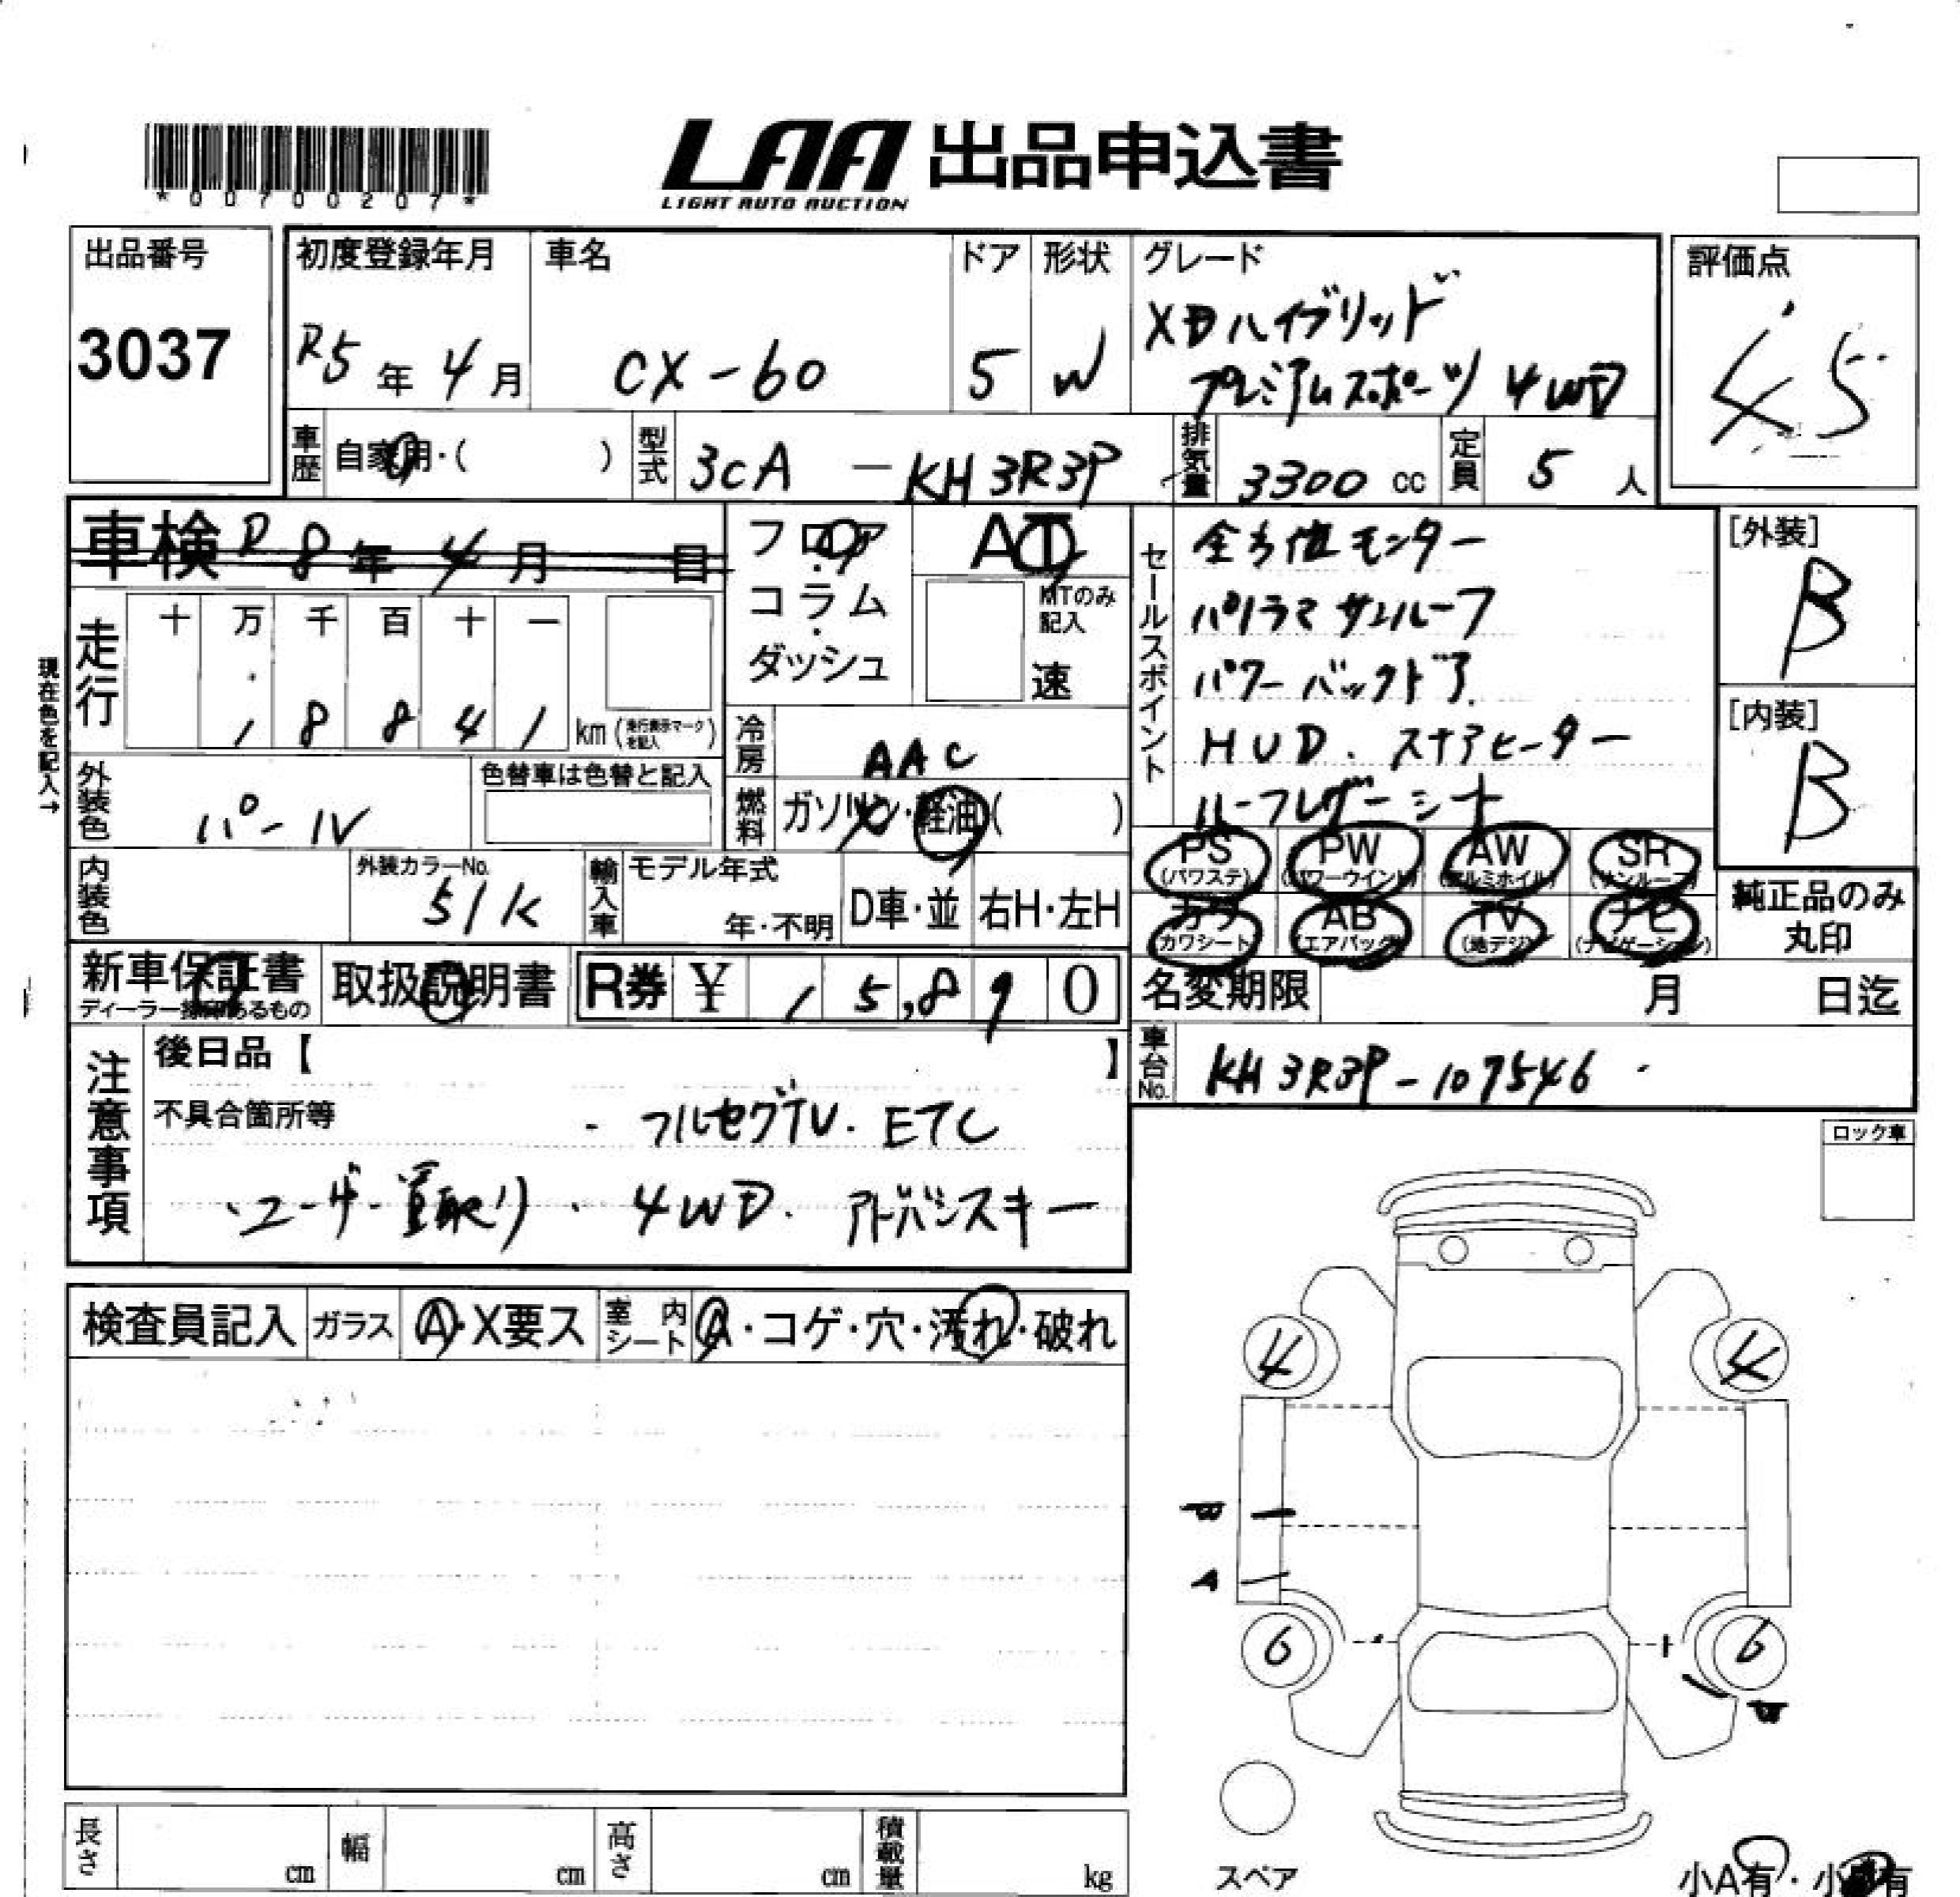 *00700207*
LAA 出品申込書
LIGHT AUTO AUCTION
出品番号
3037
初度登録年月
R5年4月
車名
CX-60
ドア
5
形状
W
グレード
XDハイブリッド
プレミアムスポーツ 4WD
評価点
4.5
車歴
自家用・( )
型式
3CA - KH3R3P
排気量
3300 cc
定員
5 人
車検 R8年4月 日
フロア・コラム・ダッシュ
AT
MTのみ記入
速
走行
十 万 千 百 十 一
1 8 8 4 1 km (走行表示マークを記入)
現在色を記入→
外装色
パール
色替車は色替と記入
冷房
AAC
燃料
ガソリン・軽油( )
内装色
外装カラーNo.
51K
輸入車
モデル年式
年・不明
D車・並
右H・左H
セールスポイント
全方位モニター
パノラマサンルーフ
パワーバックドア
HUD. ステアヒーター
レザーシート
[外装]
B
[内装]
B
PS (パワステ)
PW (パワーウインド)
AW (アルミホイル)
SR (サンルーフ)
カワ (カワシート)
AB (エアバック)
TV (地デジ)
ナビ (ナビゲーション)
純正品のみ丸印
新車保証書
ディーラー捺印あるもの
取扱説明書
R券 ¥ 15,890
名変期限 月 日迄
車台No.
KH3R3P-107546
注意事項
後日品【 】
不具合箇所等
・フルセグTV. ETC
・ユーザー買取り ・4WD. アドバンスキー
ロック車
検査員記入
ガラス
A・X要ス
室内シート
A・コゲ・穴・汚れ・破れ
4
4
B
A
6
6
B
スペア
長さ cm
幅 cm
高さ cm
積載量 kg
小A有・小B有